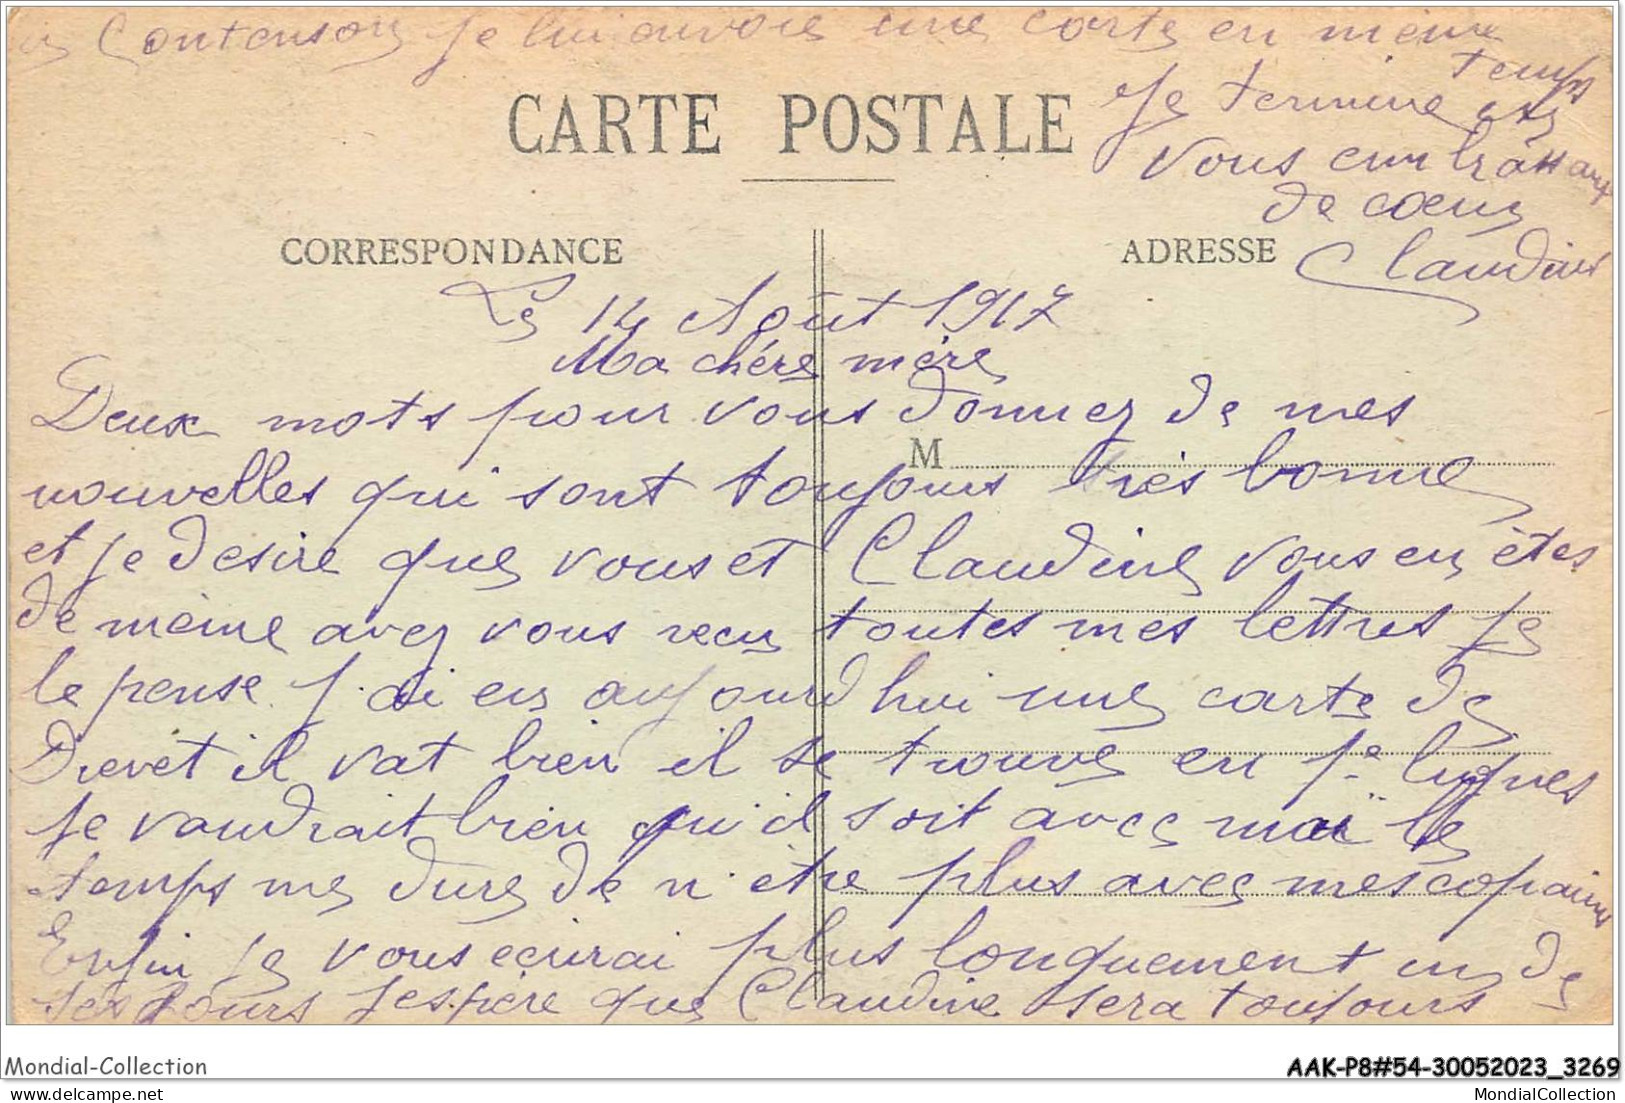 Contenson je lui envoie une carte en même
temps
CARTE POSTALE
Je termine en
vous embrassant
de cœur
CORRESPONDANCE
ADRESSE
Claudius
Le 14 Août 1917
Ma chére mére
Deux mots pour vous donnez de mes
M
nouvelles qui sont toujours très bonne
et je desire que vous et Claudine vous en êtes
de même avez vous recu toutes mes lettres je
le pense. j'ai eu aujourd'hui une carte de
Drevet il vat bien il se trouve en 1e lignes
je vaudrait bien qu'il soit avec moi le
temps me dure de n'être plus avec mes copains
Enfin je vous ecrirai plus longuement un de
ses jours j'espére que Claudine sera toujours
Mondial-Collection
AAK-P8#54-30052023_3269
delcampe.net
MondialCollection